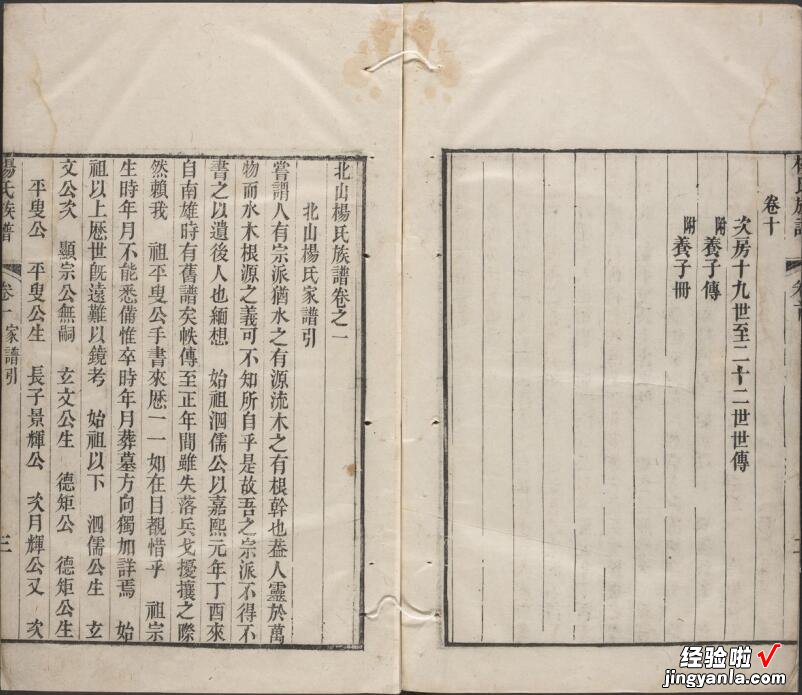 楊氏族譜
卷首
卷十
次房十九世至二十二世世傳
附養子傳
附養子冊
北山楊氏族譜卷之一
北山楊氏家譜引
嘗謂人有宗派猶水之有源流木之有根幹也葢人靈於萬
物而水木根源之義可不知所自乎是故吾之宗派不得不
書之以遺後人也緬想 始祖泗儒公以嘉熙元年丁酉來
自南雄時有舊譜矣帙傳至正年間雖失落兵戈擾攘之際
然賴我 祖平叟公手書來歷一一如在目覩惜乎 祖宗
生時年月不能悉備惟卒時年月葬墓方向獨加詳焉 始
祖以上歷世旣遠難以鏡考 始祖以下 泗儒公生 玄
文公次 顯宗公無嗣 玄文公生 德矩公 德矩公生
平叟公 平叟公生 長子景輝公 次月輝公又 次
楊氏族譜
卷一 家譜引
三
经验啦√
jingyanla.com